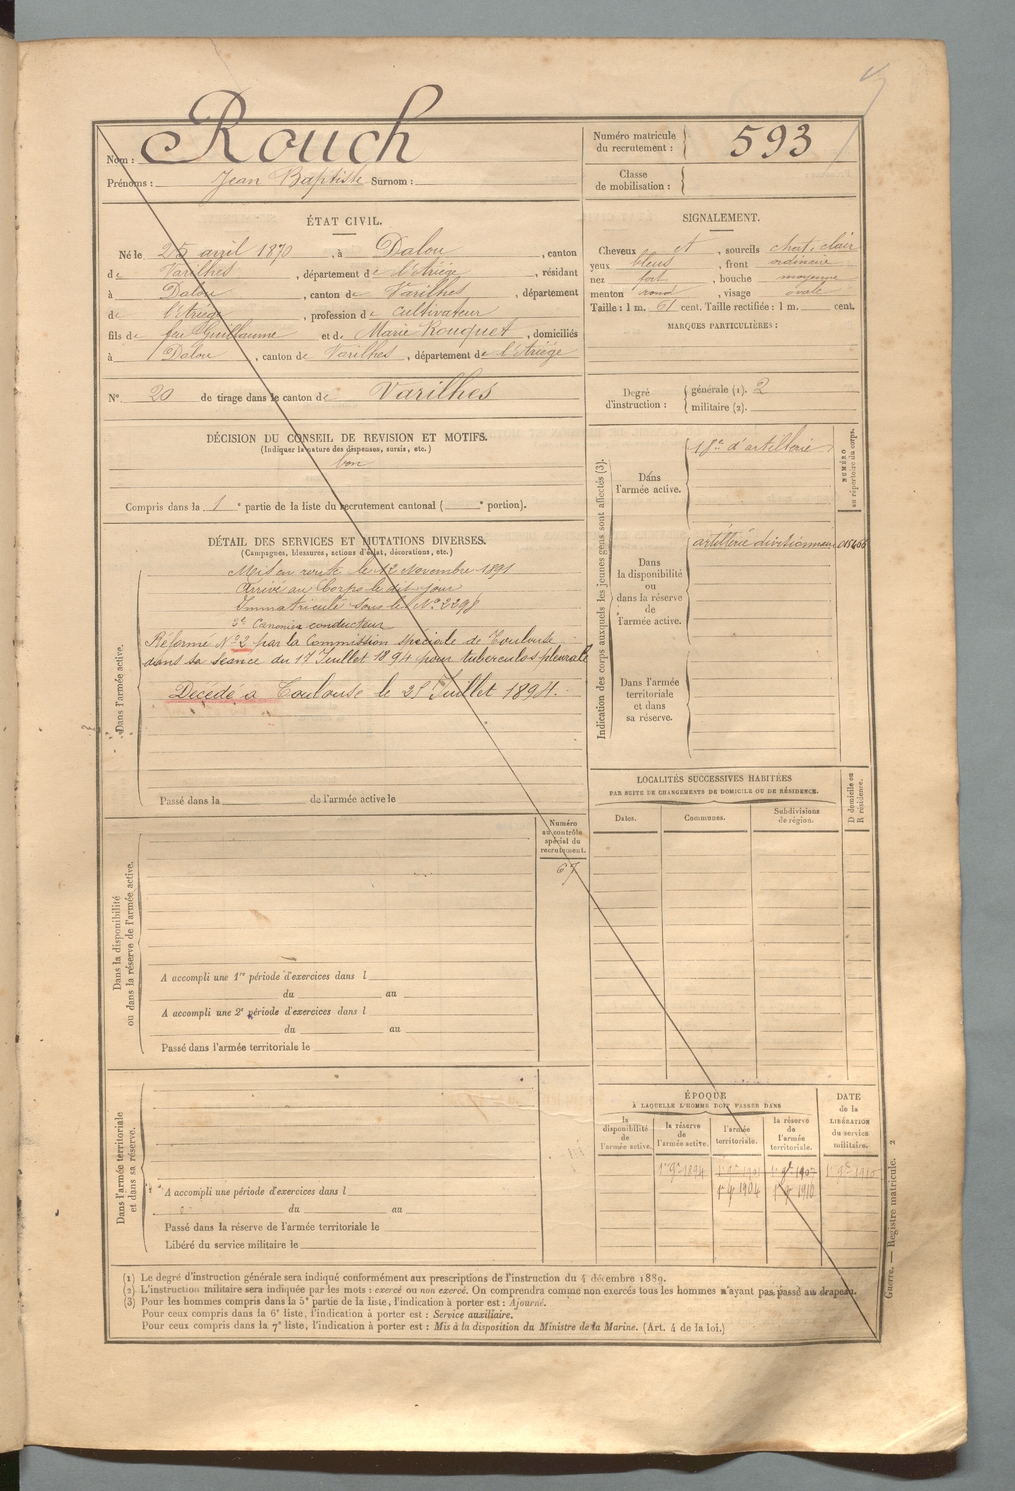 Nom : Rouch
Prénoms : Jean Baptiste Surnom :
Numéro matricule
du recrutement : 593
Classe
de mobilisation :
ÉTAT CIVIL.
Né le 25 avril 1870, à Dalou, canton
de Varilhes, département de l'Ariège, résidant
à Dalou, canton de Varilhes, département
de l'Ariège, profession de cultivateur
fils de feu Guillaume et de Marie Rouquet, domiciliés
à Dalou, canton de Varilhes, département de l'Ariège
N° 20 de tirage dans le canton de Varilhes
SIGNALEMENT.
Cheveux et, sourcils chat. clair
yeux bleus, front ordinaire
nez fort, bouche moyenne
menton rond, visage ovale
Taille : 1 m. 61 cent. Taille rectifiée : 1 m. cent.
MARQUES PARTICULIÈRES :
Degré
d'instruction :
générale (1). 2
militaire (2).
DÉCISION DU CONSEIL DE REVISION ET MOTIFS.
(Indiquer la nature des dispenses, sursis, etc.)
bon
Compris dans la 1e partie de la liste du recrutement cantonal ( e portion).
DÉTAIL DES SERVICES ET MUTATIONS DIVERSES.
(Campagnes, blessures, actions d'éclat, décorations, etc.)
Dans l'armée active.
Mis en route le 12 Novembre 1891
Arrivé au Corps le dit jour
Immatriculé sous le N° 2298
2e Canonier conducteur
Réformé N° 2 par la Commission spéciale de Toulouse
dans sa séance du 17 Juillet 1894 pour tuberculos pleurale
Décédé à Toulouse le 25 Juillet 1894.
Passé dans la de l'armée active le
Indication des corps auxquels les jeunes gens sont affectés (3).
NUMÉRO
au répertoire du corps.
Dans
l'armée active.
18e d'artillerie
Dans
la disponibilité
ou
dans la réserve
de
l'armée active.
artillerie divisionnaire
Dans l'armée
territoriale
et dans
sa réserve.
LOCALITÉS SUCCESSIVES HABITÉES
PAR SUITE DE CHANGEMENTS DE DOMICILE OU DE RÉSIDENCE.
Dates.
Communes.
Subdivisions
de région.
D domicile ou
R résidence.
Dans la disponibilité
ou dans la réserve de l'armée active.
Numéro
au contrôle
spécial du
recrutement.
67
A accompli une 1re période d'exercices dans l
du au
A accompli une 2e période d'exercices dans l
du au
Passé dans l'armée territoriale le
Dans l'armée territoriale
et dans sa réserve.
A accompli une période d'exercices dans l
du au
Passé dans la réserve de l'armée territoriale le
Libéré du service militaire le
ÉPOQUE
À LAQUELLE L'HOMME DOIT PASSER DANS
la
disponibilité
de
l'armée active.
la réserve
de
l'armée active.
l'armée
territoriale.
la réserve
de
l'armée
territoriale.
DATE
de la
LIBÉRATION
du service
militaire.
1er 9bre 1894
1er 9bre 1907
1er 9bre 1904
1er 9bre 1910
(1) Le degré d'instruction générale sera indiqué conformément aux prescriptions de l'instruction du 4 décembre 1889.
(2) L'instruction militaire sera indiquée par les mots : exercé ou non exercé. On comprendra comme non exercés tous les hommes n'ayant pas passé au drapeau.
(3) Pour les hommes compris dans la 5e partie de la liste, l'indication à porter est : Ajourné.
Pour ceux compris dans la 6e liste, l'indication à porter est : Service auxiliaire.
Pour ceux compris dans la 7e liste, l'indication à porter est : Mis à la disposition du Ministre de la Marine. (Art. 4 de la loi.)
Guerre. — Registre matricule. 2